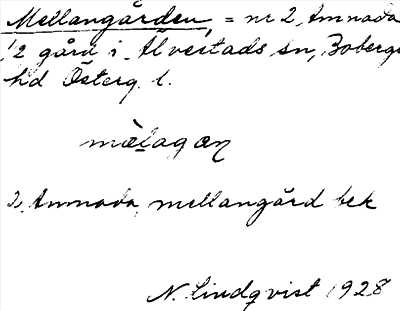 Mellangården, = nr 2, Amnada
1/2 gård i Älvestads sn, Bobergs
hd Österg. l.
mæ̀lagaṇ
2, Amnada, mellangård bek
N. Lindqvist 1928